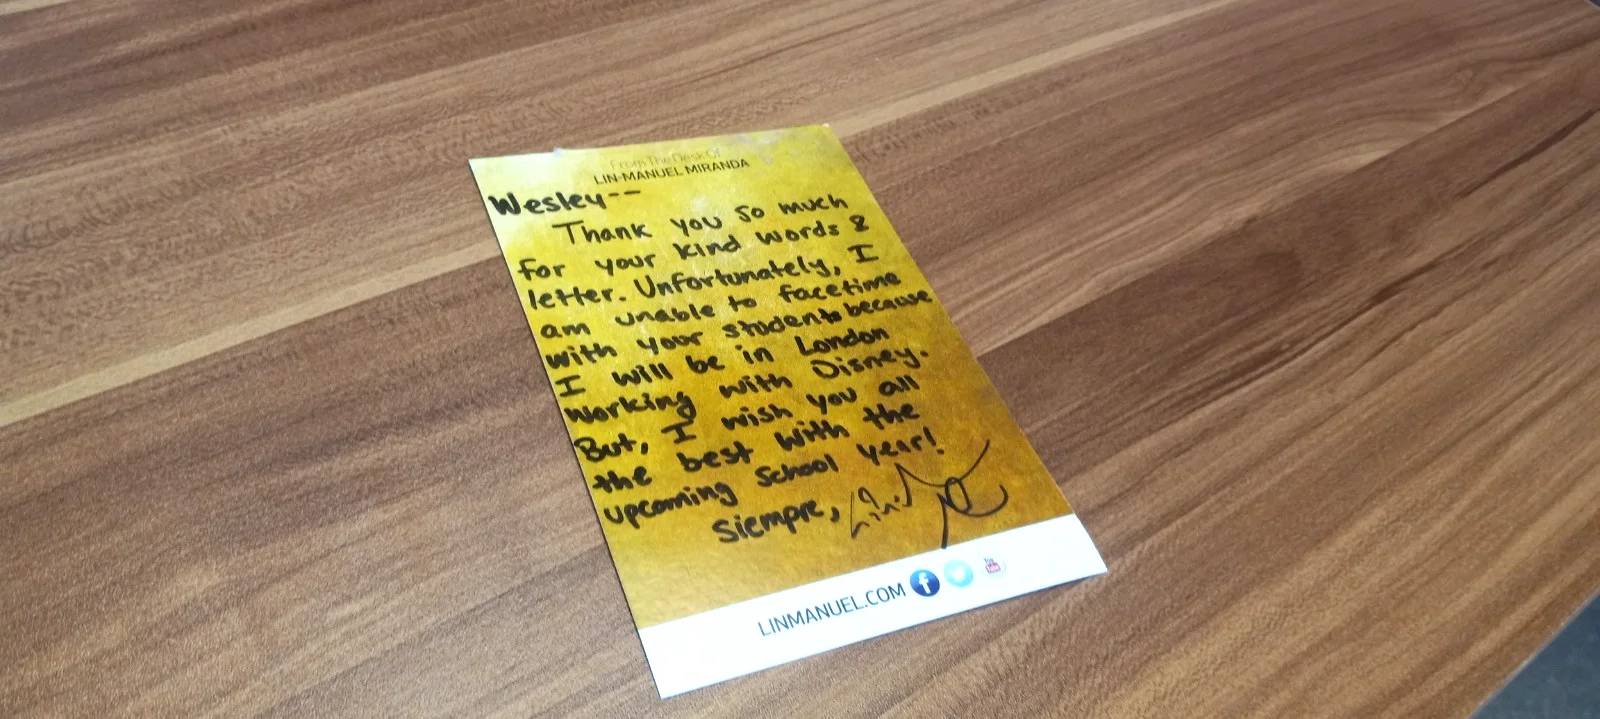 From The Desk Of
LIN-MANUEL MIRANDA
Wesley--
Thank you so much
for your kind words &
letter. Unfortunately, I
am unable to facetime
with your students because
I will be in London
working with Disney.
But, I wish you all
the best with the
upcoming school year!
Siempre,
LINMANUEL.COM